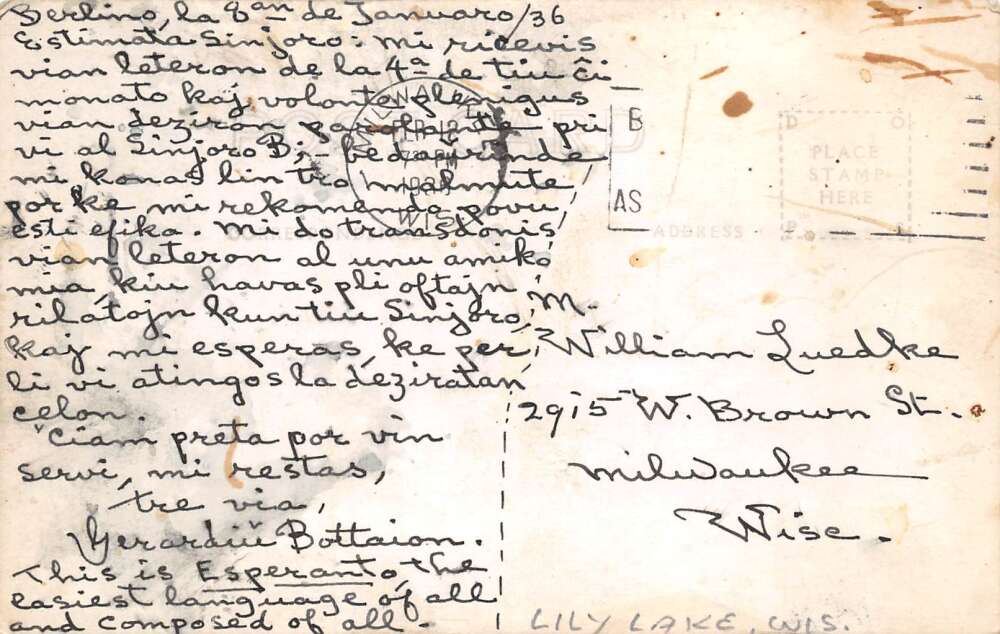 Berlino, la 8an de Januaro/36
Estimata Sinjoro: mi ricevis
vian leteron de la 4a de tiu ĉi
monato kaj volonte plenigus
vian deziron parolante pri
vi al Sinjoro B; - bedaŭrinde
mi konas lin tro malmute,
por ke mi rekomendo povu
esti efika. Mi do transdonis
vian leteron al unu amiko
mia, kiu havas pli oftajn
rilatojn kun tiu Sinjoro,
kaj mi esperas, ke per
li vi atingos la deziratan
celon.
Ĉiam preta por vin
servi, mi restas,
tre via,
Bottaion.
This is Esperanto, the
easiest language of all
and composed of all.
MILWAUKEE
WIS
B
AS
POST CARD
CORRESPONDENCE
ADDRESS
PLACE
STAMP
HERE
M.
William Luedke
2915 W. Brown St.
Milwaukee
Wisc.
LILY LAKE, WIS.